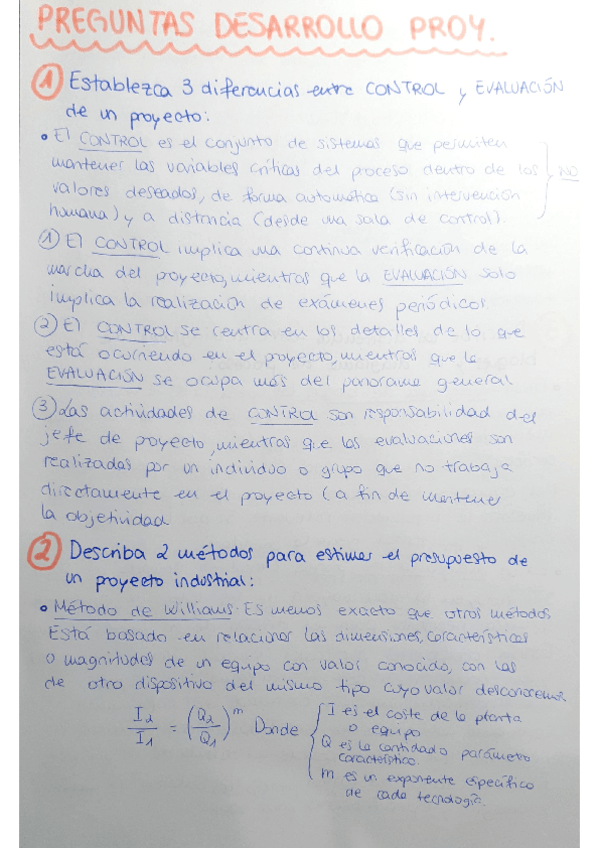 PREGUNTAS DESARROLLO PROY.
1 Establezca 3 diferencias entre CONTROL y EVALUACIÓN
de un proyecto:
• El CONTROL es el conjunto de sistemas que permiten
mantener las variables críticas del proceso dentro de los
valores deseados, de forma automática (sin intervención
humana) y a distancia (desde una sala de control).
NO
1) El CONTROL implica una continua verificación de la
marcha del proyecto, mientras que la EVALUACIÓN solo
implica la realización de exámenes periódicos
2) El CONTROL se centra en los detalles de lo que
está ocurriendo en el proyecto, mientras que la
EVALUACIÓN se ocupa más del panorama general
3) Las actividades de CONTROL son responsabilidad del
jefe de proyecto, mientras que las evaluaciones son
realizadas por un individuo o grupo que no trabaja
directamente en el proyecto (a fin de mantener
la objetividad
2 Describa 2 métodos para estimar el presupuesto de
un proyecto industrial:
• Método de Williams. Es menos exacto que otros métodos
Está basado en relacionar las dimensiones, características
o magnitudes de un equipo con valor conocido, con las
de otro dispositivo del mismo tipo cuyo valor desconocemos
I2/I1 = (Q2/Q1)^m Donde
I es el coste de la planta
o equipo
Q es la cantidad o parámetro
característico.
m es un exponente específico
de cada tecnología.